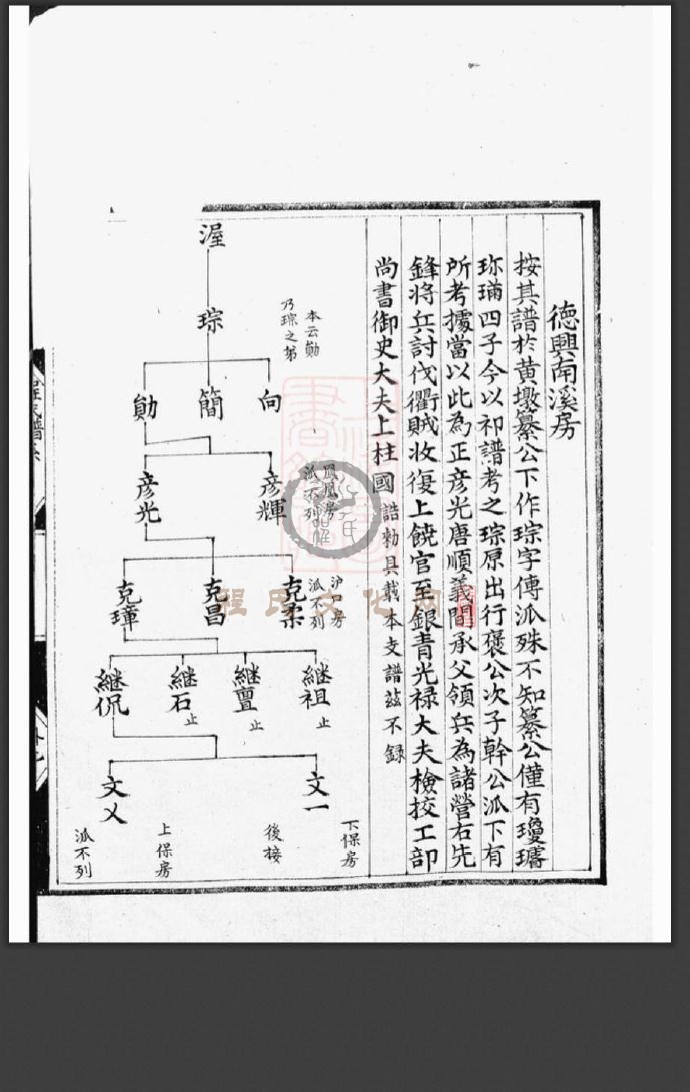 德興南溪房
按其譜於黃墩纂公下作琮字傳派殊不知纂公僅有瓊璠
珎瑀四子今以祁譜考之琮原出行褒公次子幹公派下有
所考據當以此為正彥光唐順義間承父領兵為諸營右先
鋒將兵討伐衢賊收復上饒官至銀青光祿大夫檢挍工部
尚書御史大夫上柱國誥勅具載本支譜茲不錄
渥
琮
本云勛
乃琮之弟
向
簡
勛
彥輝
鳳凰房
派不列
彥光
克柔
沪口房
派不列
克昌
克璋
継祖
止
継亶
止
継石
止
継侃
文一
下保房
後接
文乂
上保房
派不列
程氏文化网